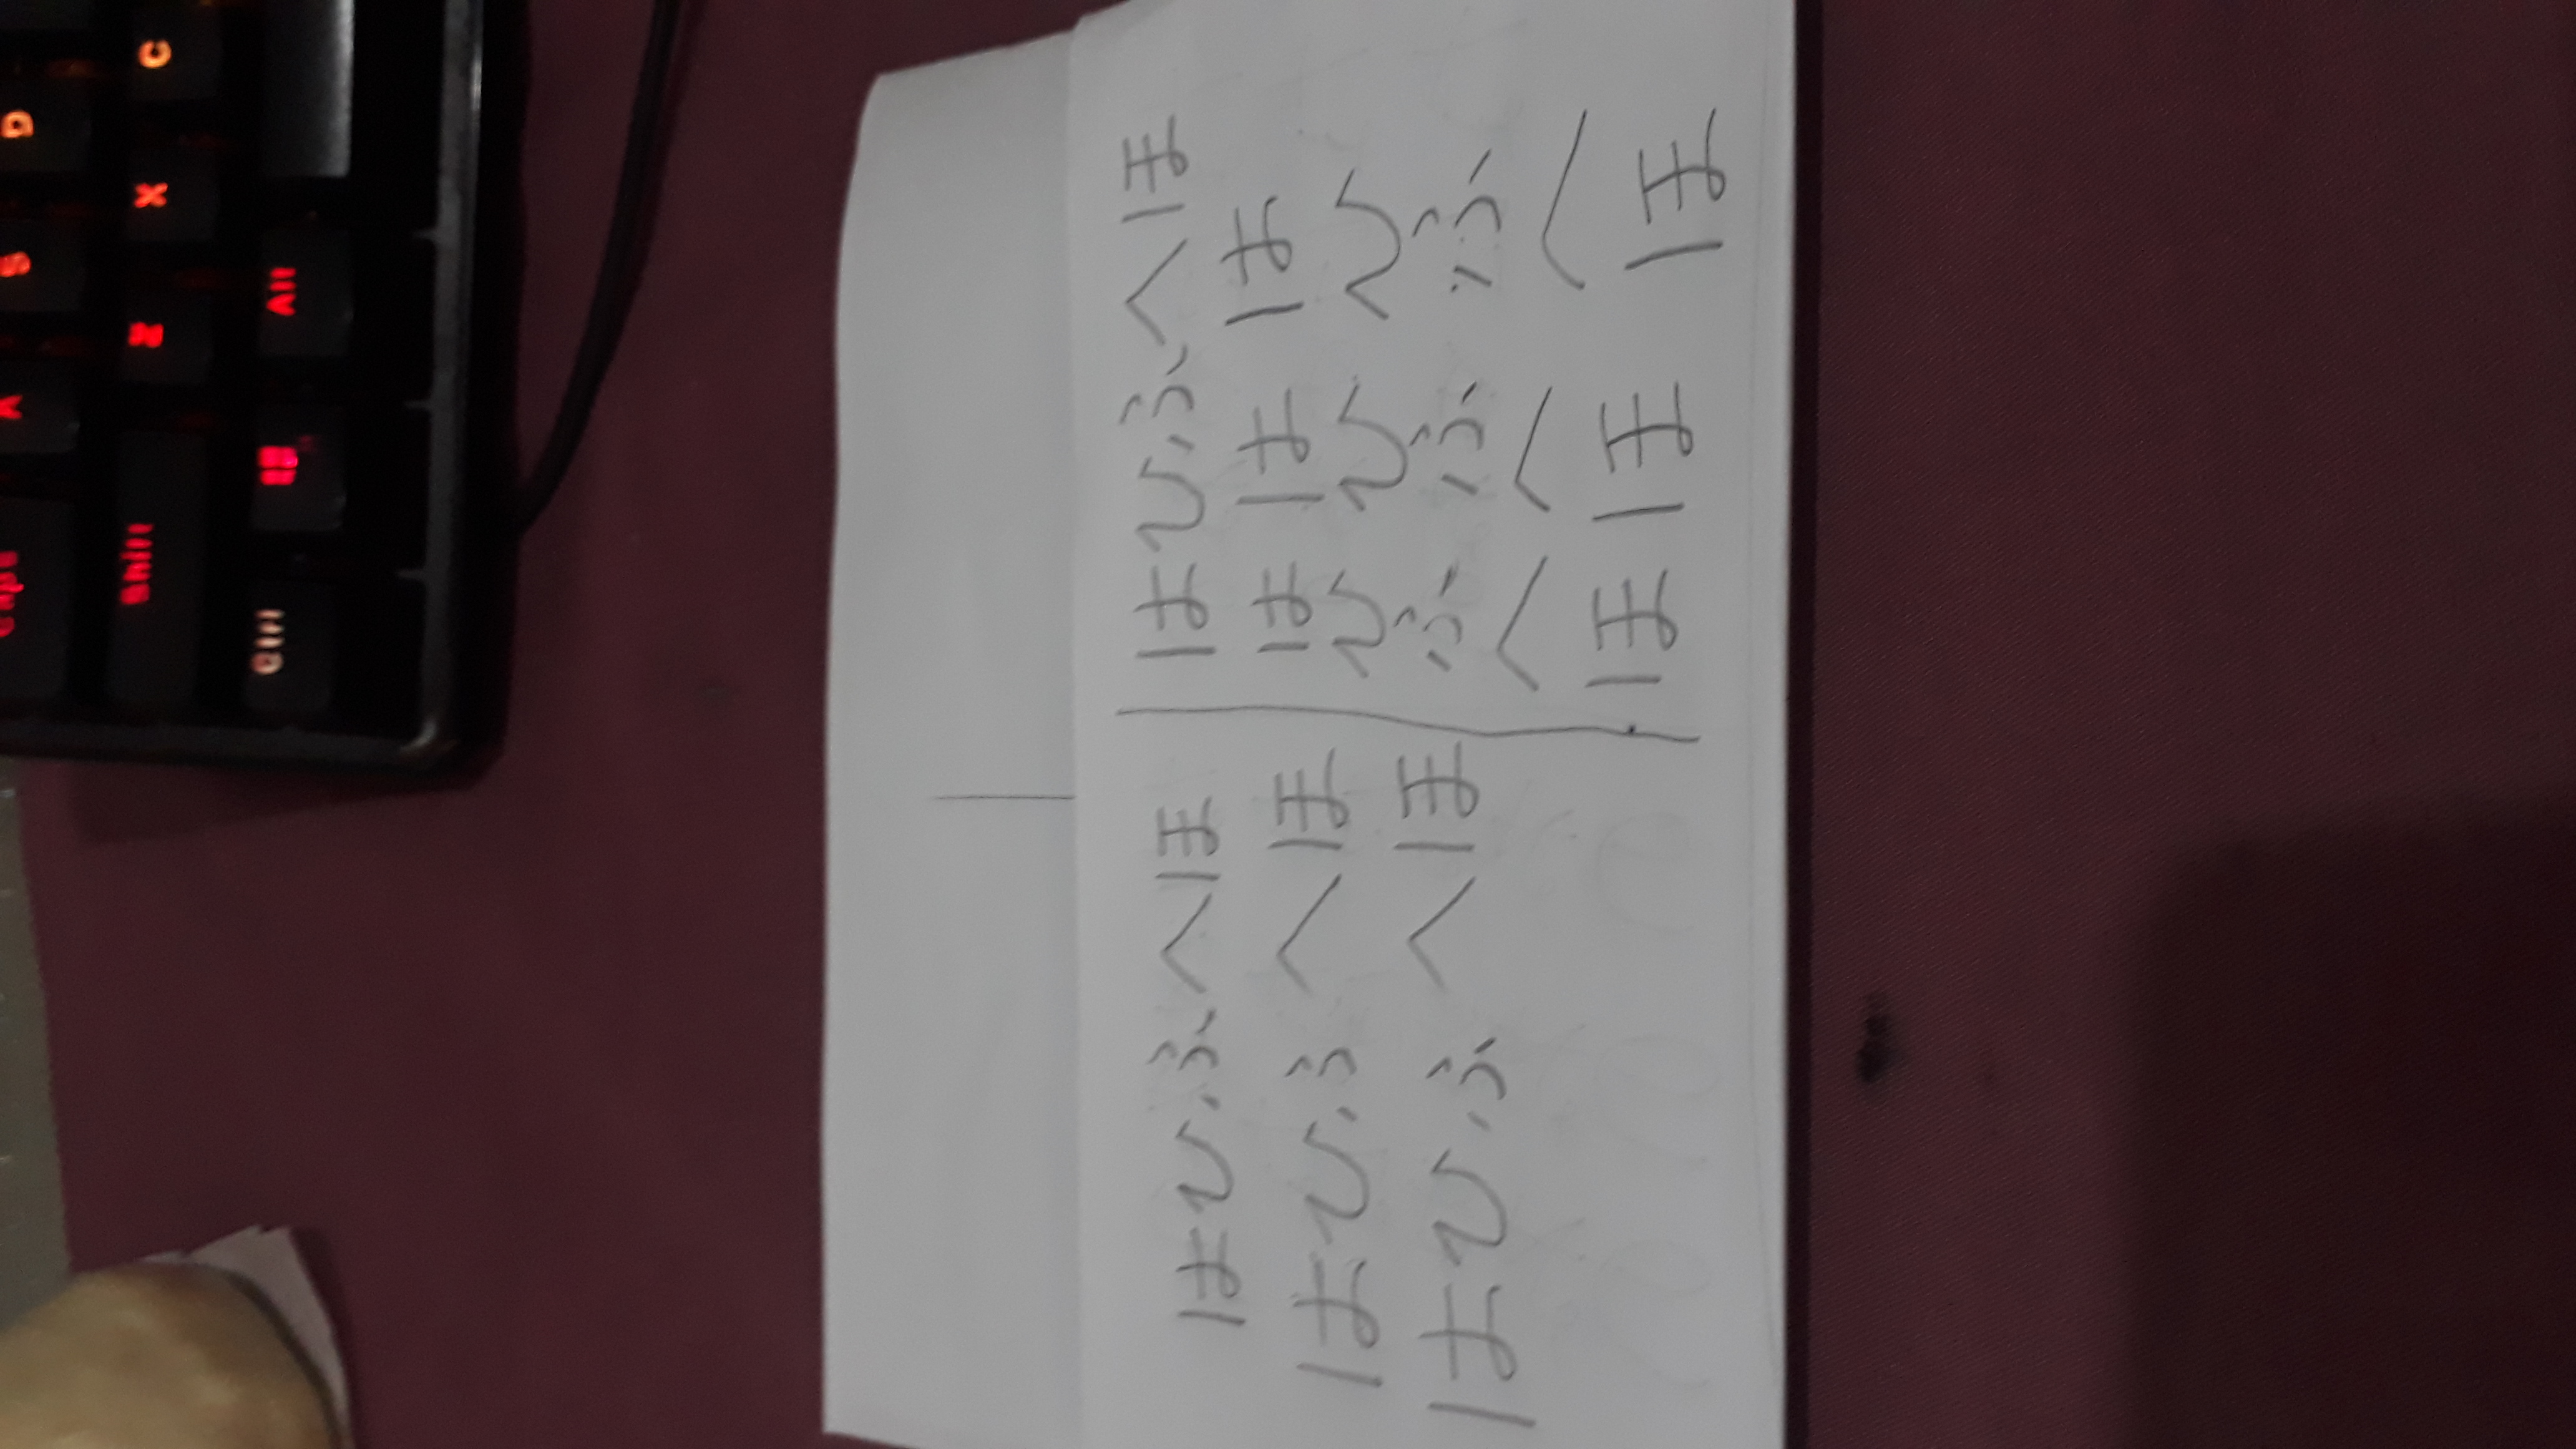 Caps A S D
Shift Z X C
Ctrl Alt
はひふへほ
はひふへほ
はひふへほ
はひふへほ
は は は
ひ ひ ひ
ふ ふ ふ
へ へ へ
ほ ほ ほ